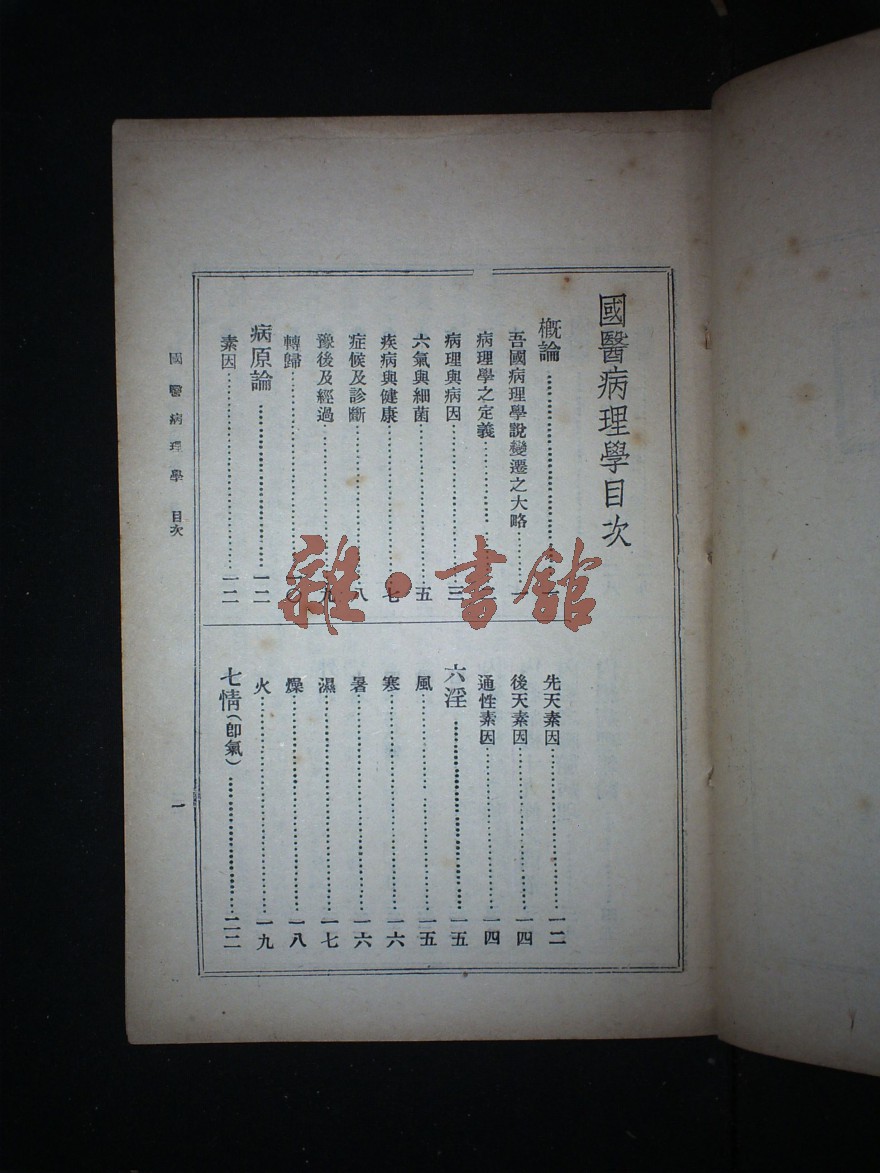 國醫病理學目次
概論…………一
吾國病理學說變遷之大略…………一
病理學之定義…………二
病理與病因…………三
六氣與細菌…………五
疾病與健康…………七
症候及診斷…………八
豫後及經過…………九
轉歸…………一〇
病原論…………一二
素因…………一二
先天素因…………一二
後天素因…………一四
通性素因…………一四
六淫…………一五
風…………一五
寒…………一六
暑…………一六
濕…………一七
燥…………一八
火…………一九
七情(卽氣)…………二二
國醫病理學 目次
一
雜·書館